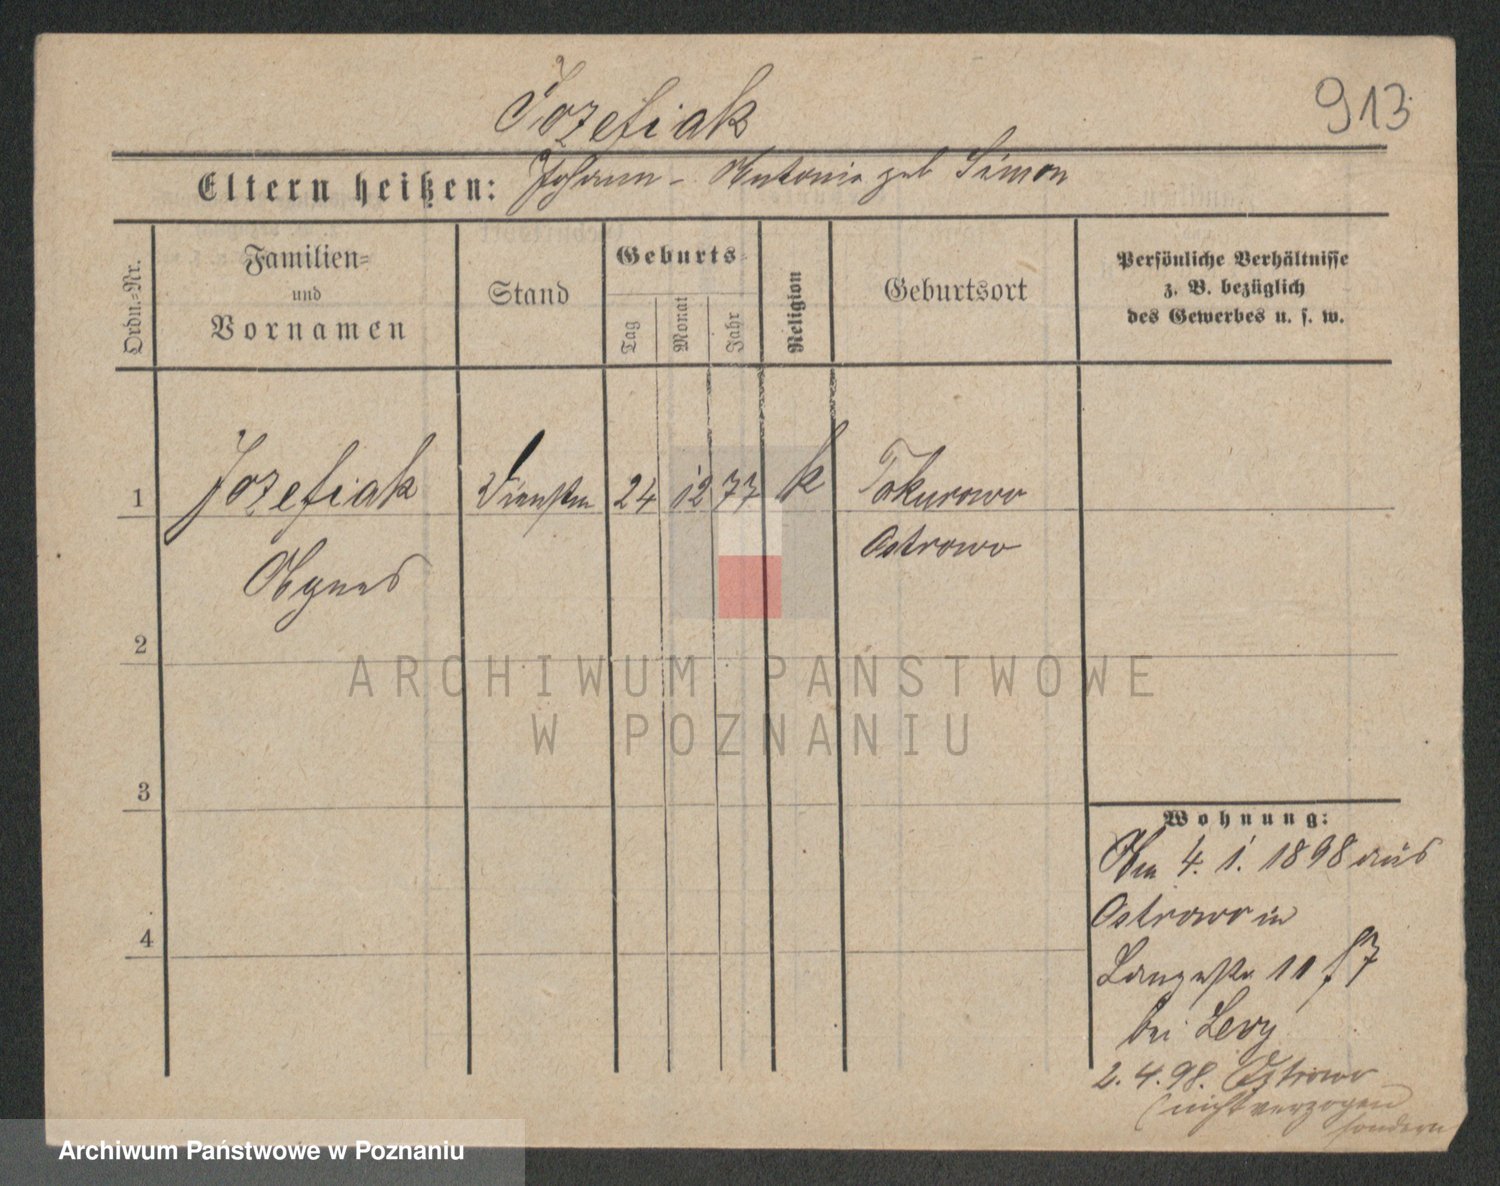 913
Jozefiak
Eltern heißen: Johann - Antonie geb Simon
Ordn.=Nr.
Familien=
und
Vornamen
Stand
Geburts=
Tag
Monat
Jahr
Religion
Geburtsort
Persönliche Verhältnisse
z. B. bezüglich
des Gewerbes u. s. w.
1 Jozefiak 24 12 77 k Tokurowo
Agnes Ostrowo
2
3
4
Wohnung:
Am 4. 1. 1898 aus
Ostrowo in
Langestr 11
bei Levy
2. 4. 98. Ostrowo
(nicht verzogen
sondern
ARCHIWUM PAŃSTWOWE
W POZNANIU
Archiwum Państwowe w Poznaniu